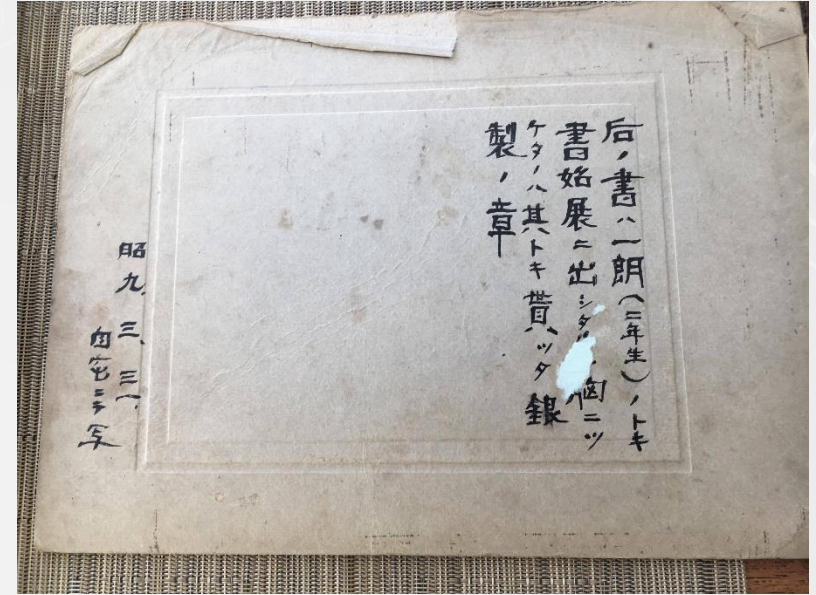 后ノ書ハ一朗(二年生)ノトキ
書始展ニ出シタ 胸ニツ
ケタノハ其トキ貰ハツタ銀
製ノ章
昭九、三、三一、
自宅ニテ写